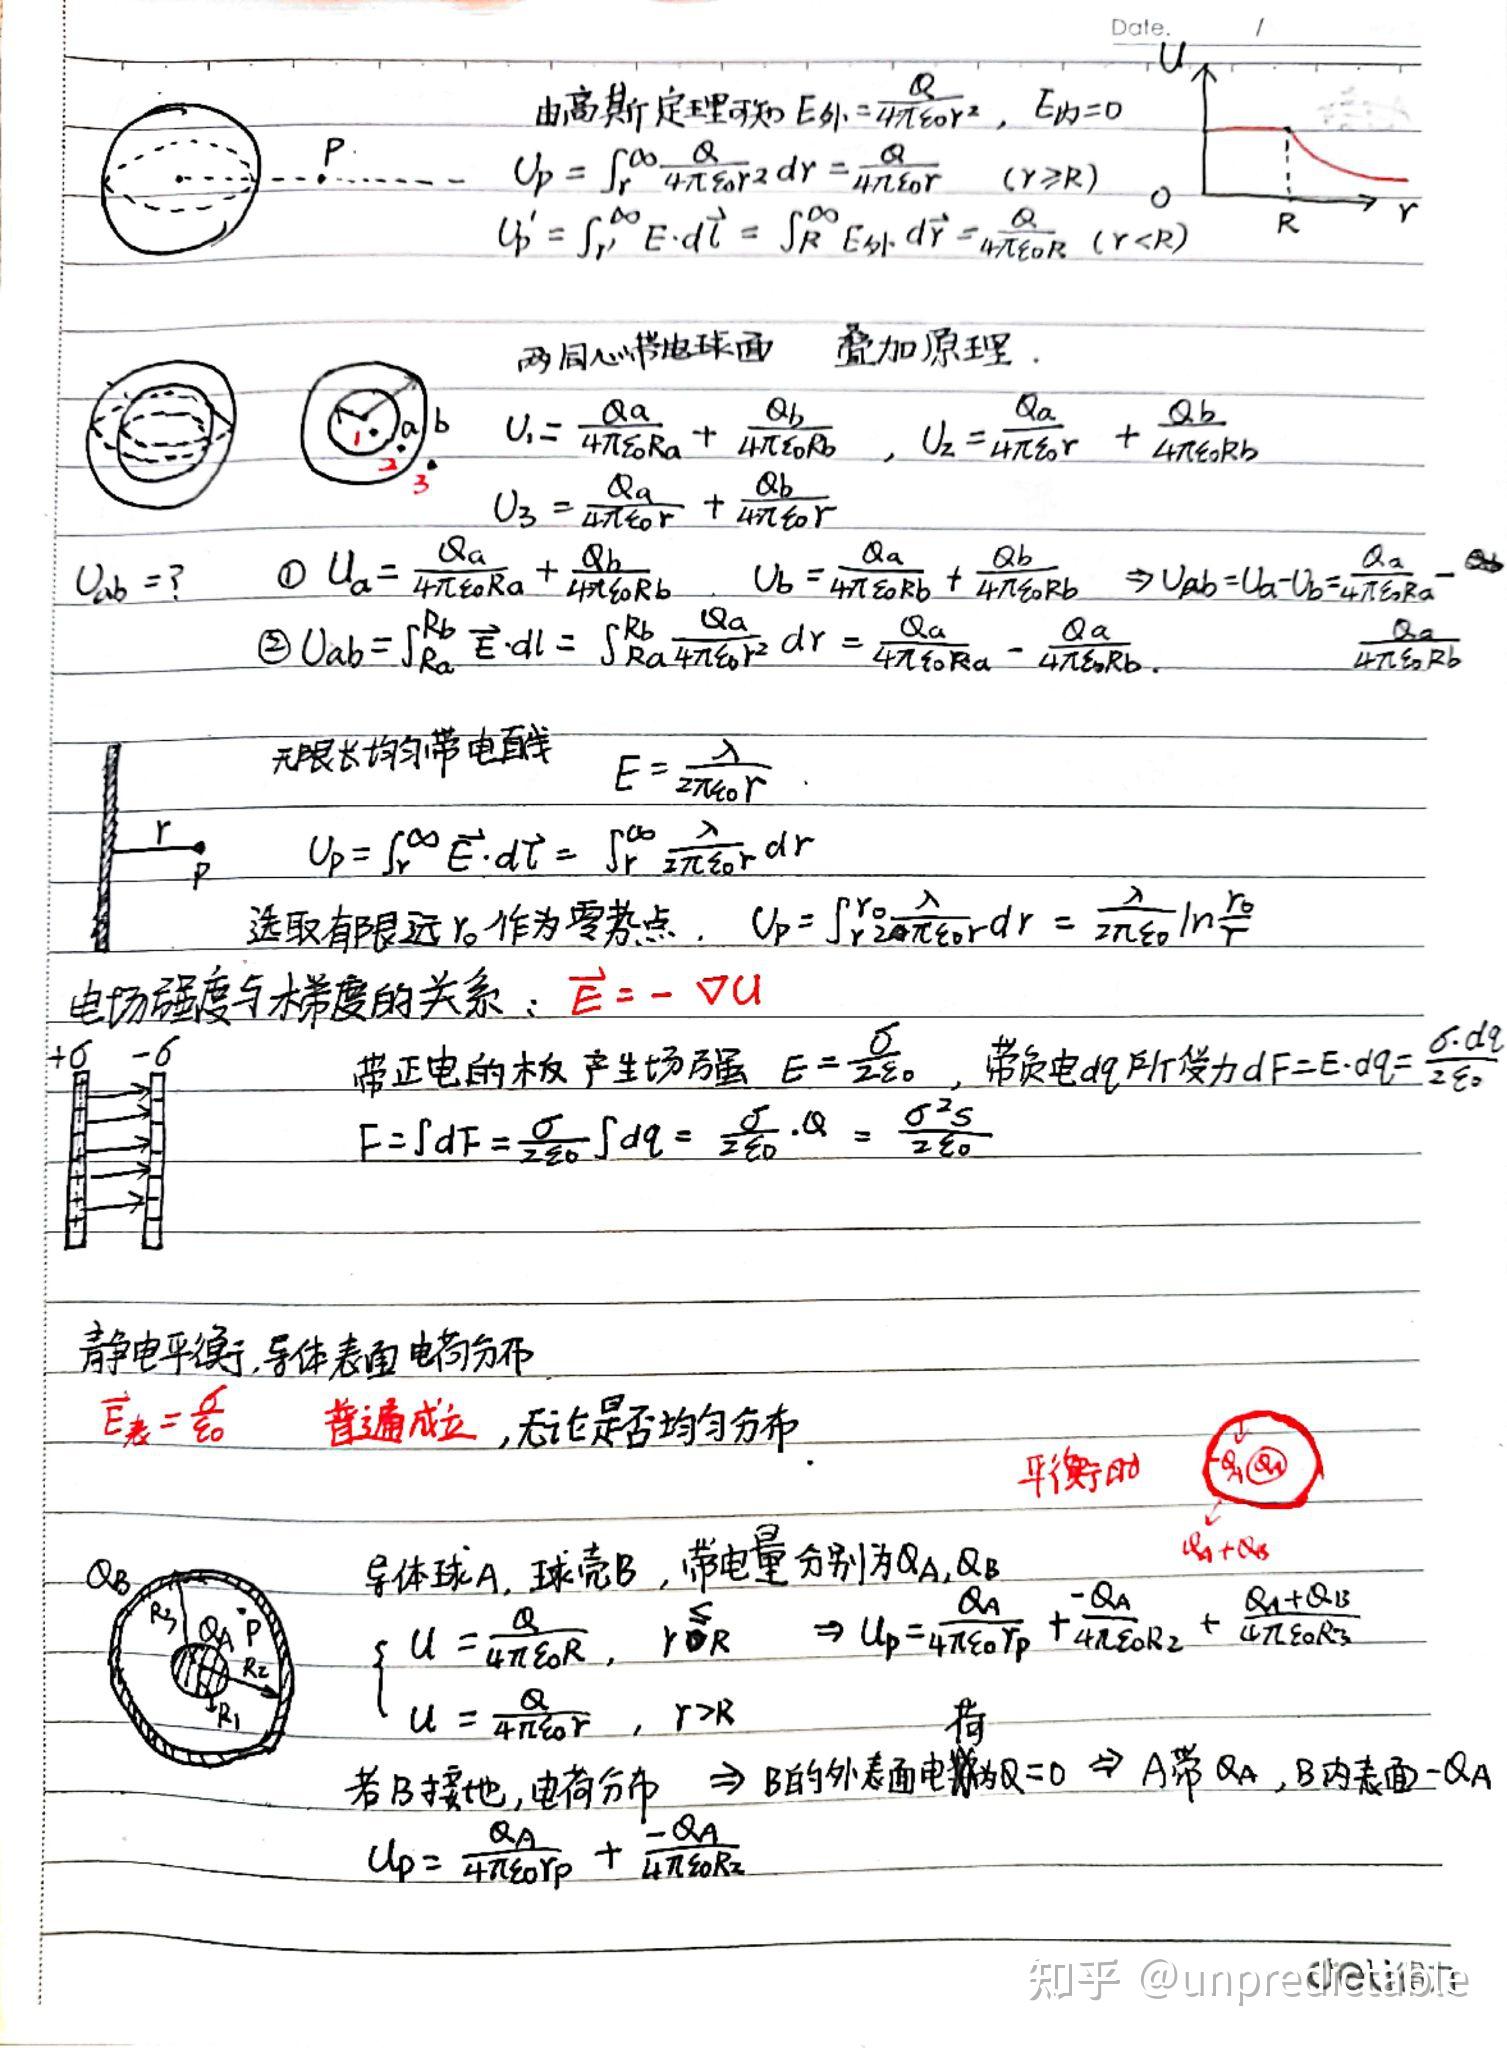 Date. /
由高斯定理可知 E外 = Q/4πε₀r² , E内=0
U_p = ∫_r^∞ Q/4πε₀r² dr = Q/4πε₀r (r≥R)
U_p' = ∫_r'^∞ E·dl⃗ = ∫_R^∞ E外 dr⃗ = Q/4πε₀R (r<R)
U
O R r
P
两同心带电球面 叠加原理.
1 2 3 a b
U₁ = Qa/4πε₀Ra + Qb/4πε₀Rb , U₂ = Qa/4πε₀r + Qb/4πε₀Rb
U₃ = Qa/4πε₀r + Qb/4πε₀r
Uab=? ① Ua = Qa/4πε₀Ra + Qb/4πε₀Rb . Ub = Qa/4πε₀Rb + Qb/4πε₀Rb ⇒ Uab=Ua-Ub= Qa/4πε₀Ra -
Qa/4πε₀Rb
② Uab = ∫_Ra^Rb E⃗·dl = ∫_Ra^Rb Qa/4πε₀r² dr = Qa/4πε₀Ra - Qa/4πε₀Rb .
无限长均匀带电直线 E = λ/2πε₀r .
r P
U_p = ∫_r^∞ E⃗·dl⃗ = ∫_r^∞ λ/2πε₀r dr
选取有限远r₀作为零势点. U_p = ∫_r^r₀ λ/2πε₀r dr = λ/2πε₀ ln r₀/r
电场强度与梯度的关系: E⃗ = - ∇U
+σ -σ
带正电的板产生场强 E = σ/2ε₀ , 带负电dq所受力dF=E·dq= σ·dq/2ε₀
F=∫dF= σ/2ε₀ ∫dq = σ/2ε₀ ·Q = σ²s/2ε₀
静电平衡,导体表面电荷分布
E⃗表 = σ/ε₀ 普遍成立 ,无论是否均匀分布.
平衡时 -QA QA
QA+QB
导体球A, 球壳B, 带电量分别为QA, QB
QB R3 QA P R2 R1
U = Q/4πε₀R , r≤R ⇒ U_p = QA/4πε₀r_p + -QA/4πε₀R2 + QA+QB/4πε₀R3
U = Q/4πε₀r , r>R
若B接地,电荷分布 ⇒ B的外表面电荷为Q=0 ⇒ A带QA, B内表面-QA
U_p = QA/4πε₀r_p + -QA/4πε₀R2
知乎 @unpredictable